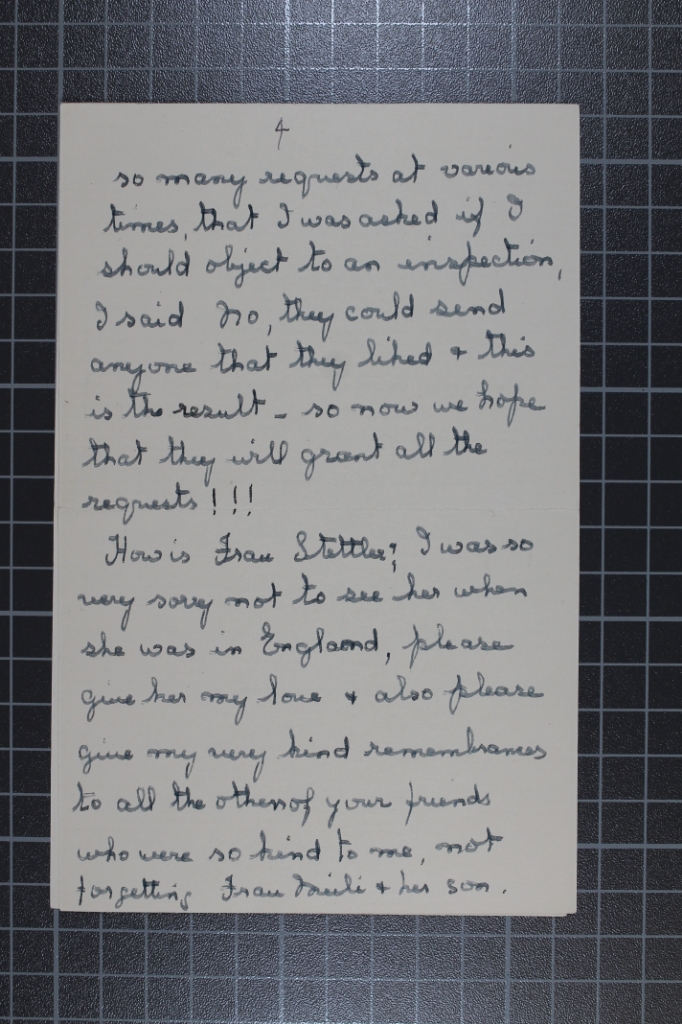 4
so many requests at various
times, that I was asked if I
should object to an inspection,
I said No, they could send
anyone that they liked + this
is the result - so now we hope
that they will grant all the
requests!!!
How is Frau Stettler? I was so
very sorry not to see her when
she was in England, please
give her my love + also please
give my very kind remembrances
to all the others of your friends
who were so kind to me, not
forgetting Frau & her son.